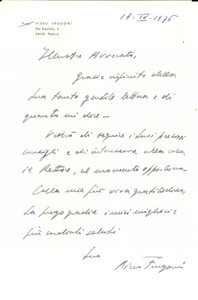 PIERO FRUGONI
17. IV. 1975
Illustre Avvocato,
Grazie infinite della
Sua tanto gentile lettera e di
quanto mi dice —
Vedrò di seguire i Suoi preziosi
consigli e di interessare alla cosa
il Rettore, al momento opportuno.
Colla mia più viva gratitudine,
La prego gradire i miei migliori e
più cordiali saluti
Suo